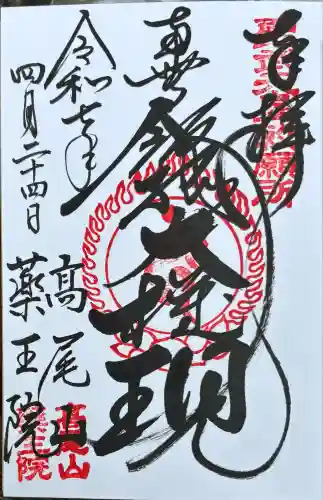 奉拝
南無飯縄大権現
令和七年
四月二十四日
高尾山
薬王院
高尾山
薬王院